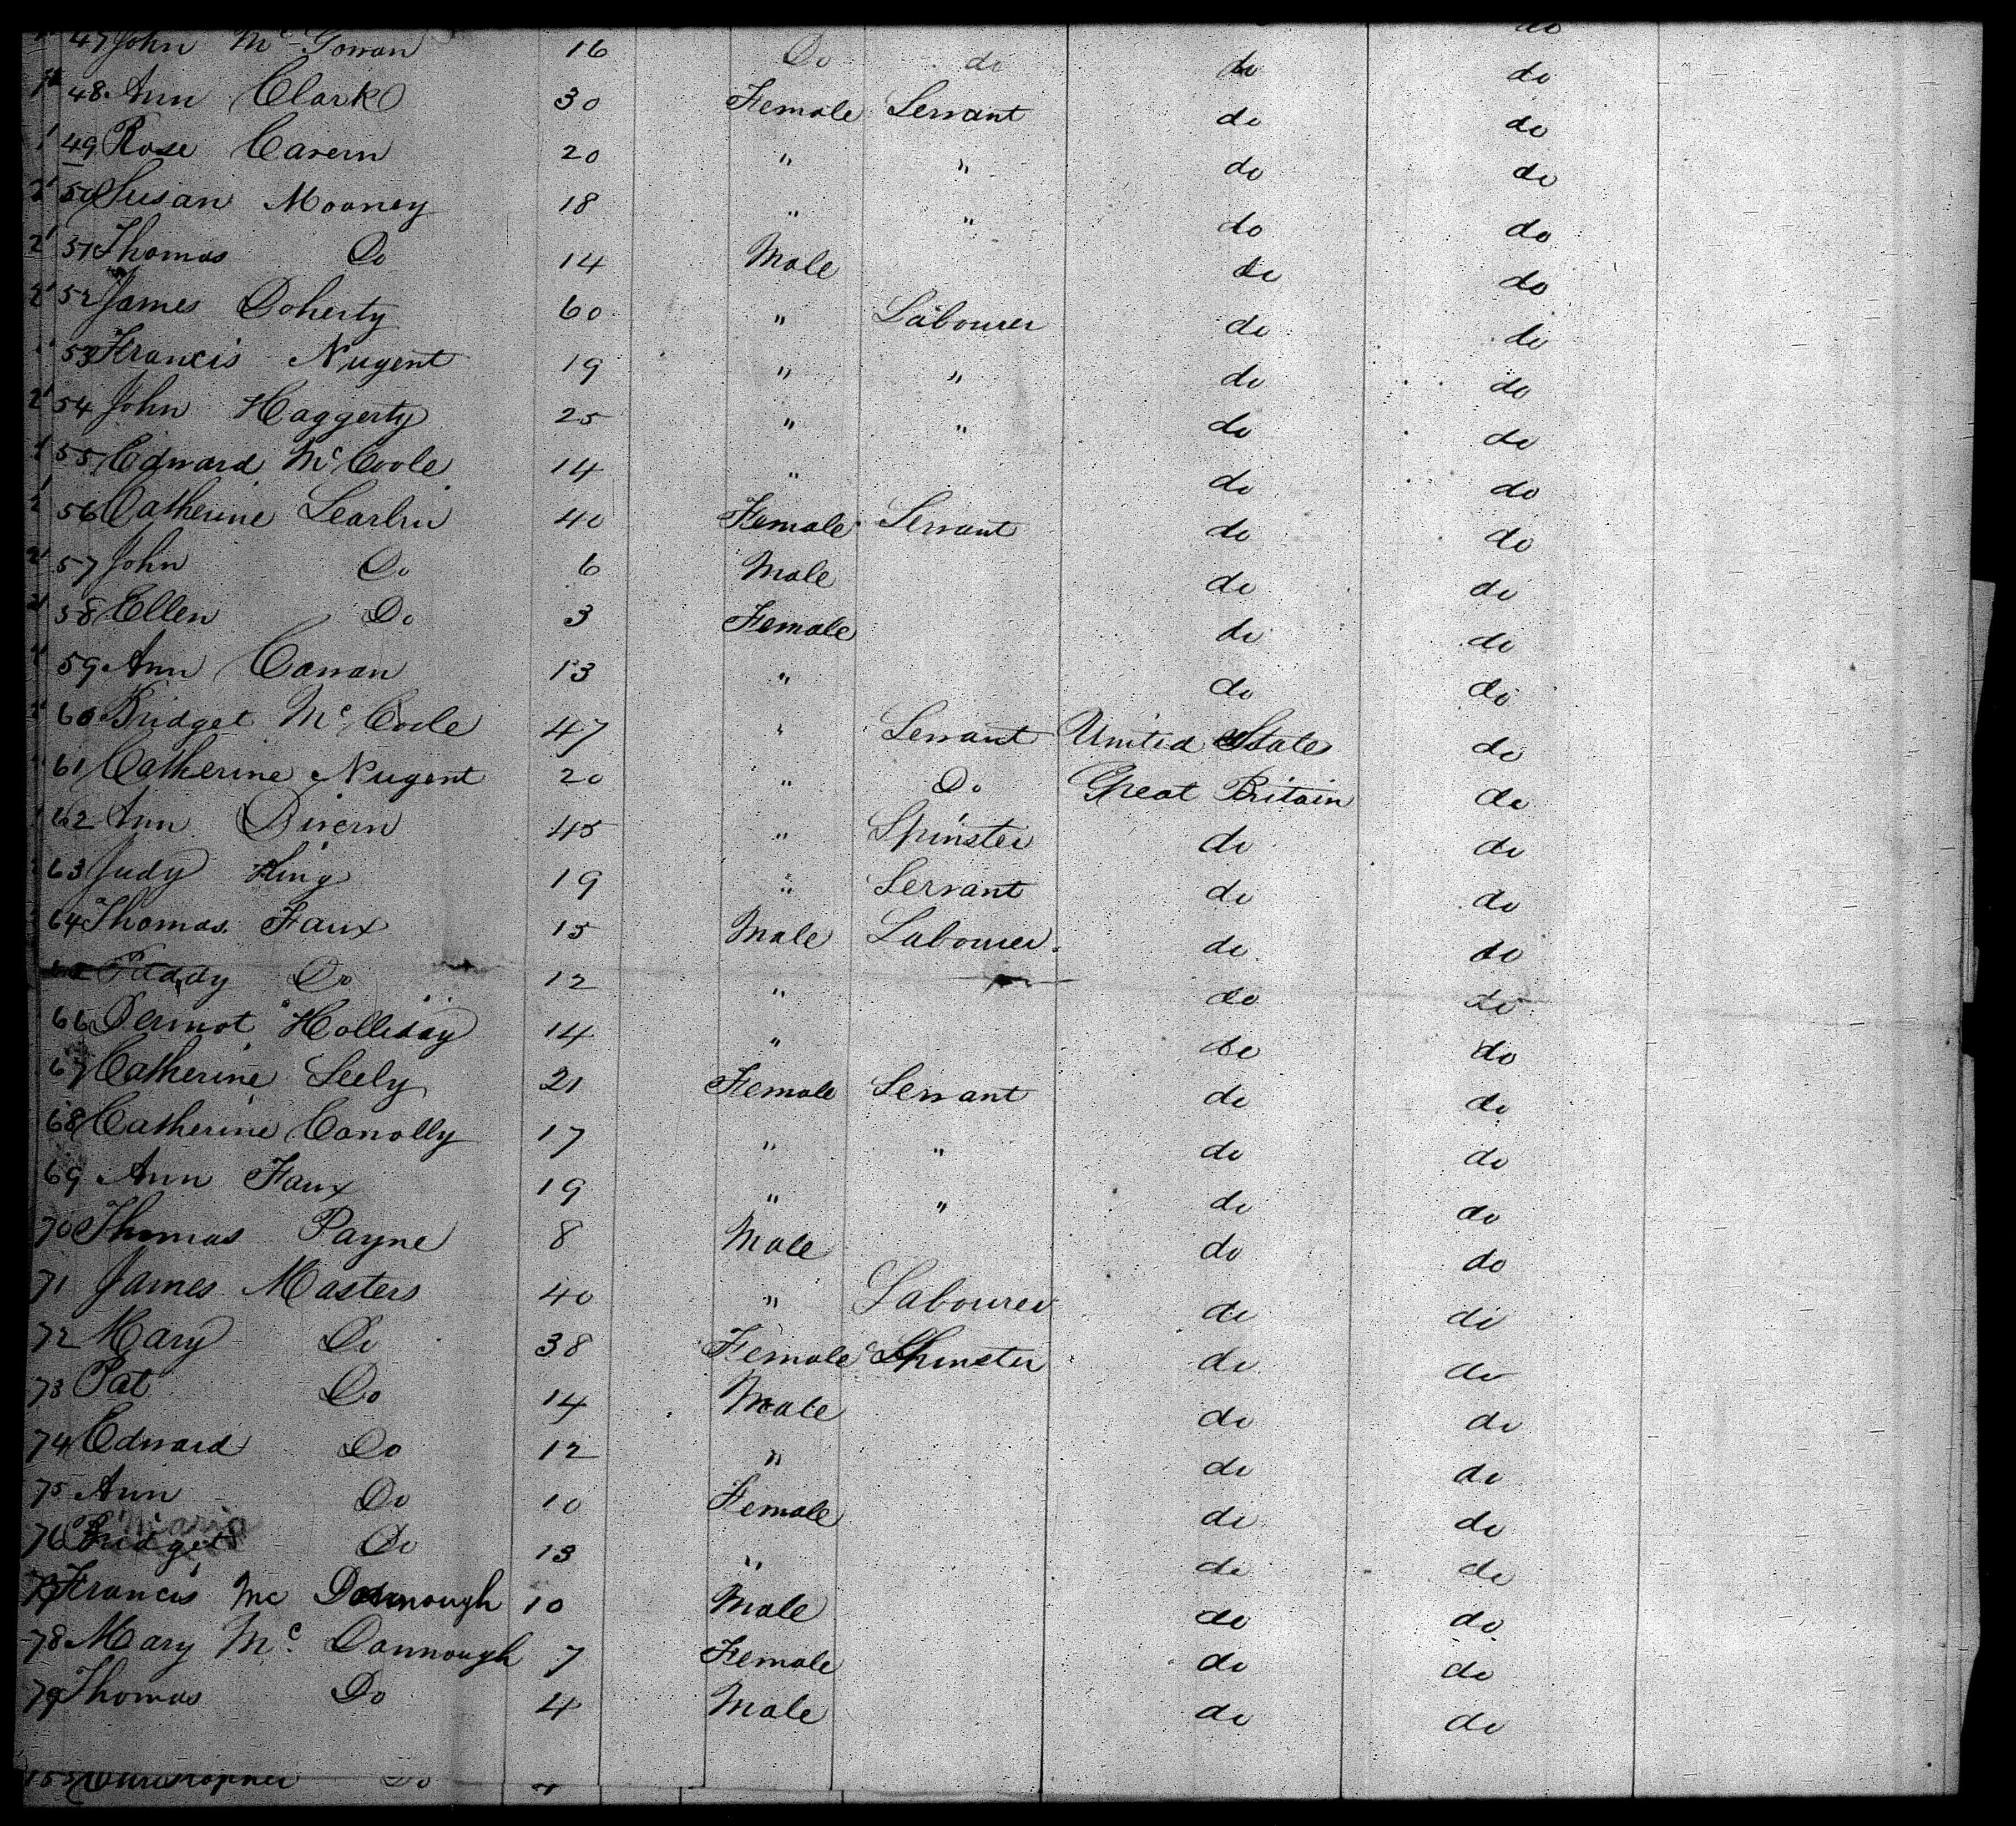 do
47 John McGowan 16 Do do do do
48 Ann Clark 30 Female Servant do do
49 Rose Cavern 20 " " do do
50 Susan Mooney 18 " " do do
51 Thomas Do 14 Male do do
52 James Doherty 60 " Labourer do do
53 Francis Nugent 19 " " do do
54 John Haggerty 25 " " do do
55 Edward McCoole 14 " do do
56 Catherine 40 Female Servant do do
57 John Do 6 Male do do
58 Ellen Do 3 Female do do
59 Ann 13 " do do
60 Bridget McCoole 47 " Servant United States do
61 Catherine Nugent 20 " Do Great Britain do
62 Ann Divern 45 " Spinster do do
63 Judy King 19 " Servant do do
64 Thomas Faux 15 Male Labourer do do
65 Paddy Do 12 " do do
66 Dermot Holliday 14 " do do
67 Catherine Seely 21 Female Servant do do
68 Catherine Conolly 17 " " do do
69 Ann Faux 19 " " do do
70 Thomas Payne 8 Male do do
71 James Masters 40 " Labourer do do
72 Mary Do 38 Female Spinster do do
73 Pat Do 14 Male do do
74 Edward Do 12 " do do
75 Ann Do 10 Female do do
Maria
76 Bridget Do 13 " do do
77 Francis Mc Donnough 10 Male do do
78 Mary Mc Donnough 7 Female do do
79 Thomas Do 4 Male do do
Do